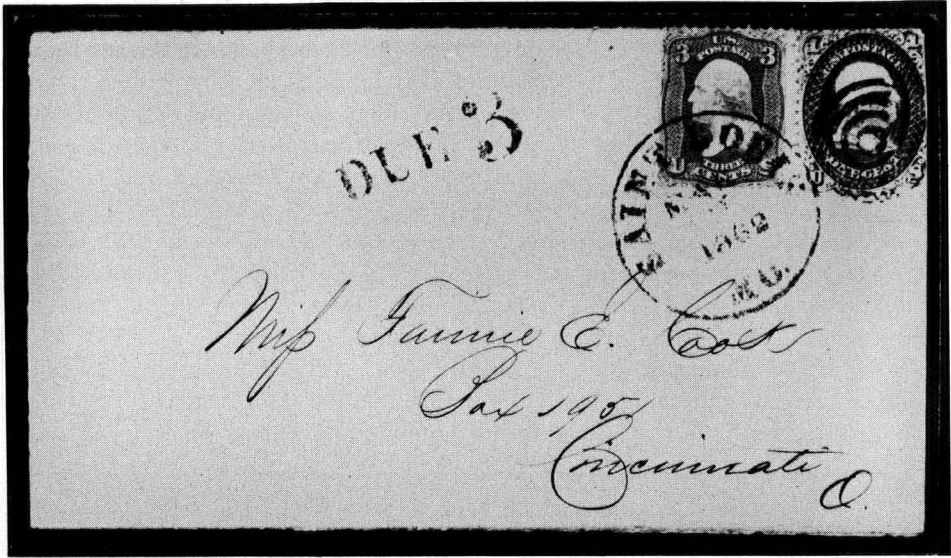 U.S.
POSTAGE
3 3
THREE
CENTS
U
U.S. POSTAGE
DUE 3
SAINT
1862
MO.
Miss Fannie E.
Box 1951
Cincinnati
O.